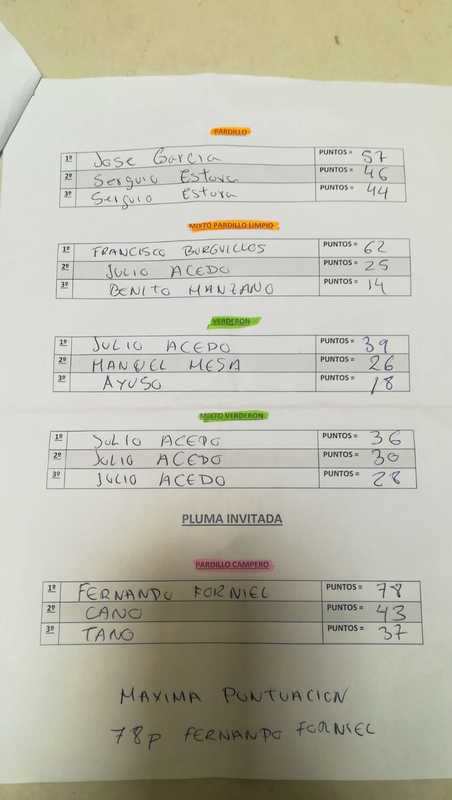 PARDILLO
1º Jose Garcia PUNTOS = 57
2º Serguio Estora PUNTOS = 46
3º Serguio Estora PUNTOS = 44
MIXTO PARDILLO LIMPIO
1º FRANCISCO BURGUILLOS PUNTOS = 62
2º JULIO ACEDO PUNTOS = 25
3º BENITO MANZANO PUNTOS = 14
VERDERON
1º JULIO ACEDO PUNTOS = 39
2º MANUEL MESA PUNTOS = 26
3º AYUSO PUNTOS = 18
MIXTO VERDERON
1º JULIO ACEDO PUNTOS = 36
2º JULIO ACEDO PUNTOS = 30
3º JULIO ACEDO PUNTOS = 28
PLUMA INVITADA
PARDILLO CAMPERO
1º FERNANDO FORNIEL PUNTOS = 78
2º CANO PUNTOS = 43
3º TANO PUNTOS = 37
MAXIMA PUNTUACION
78p FERNANDO FORNIEL